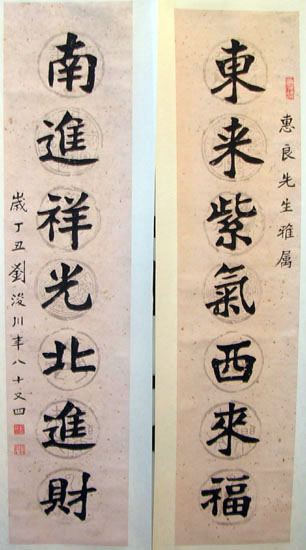 惠良先生雅属
東来紫氣西來福
南進祥光北進財
歲丁丑劉浚川年八十又四